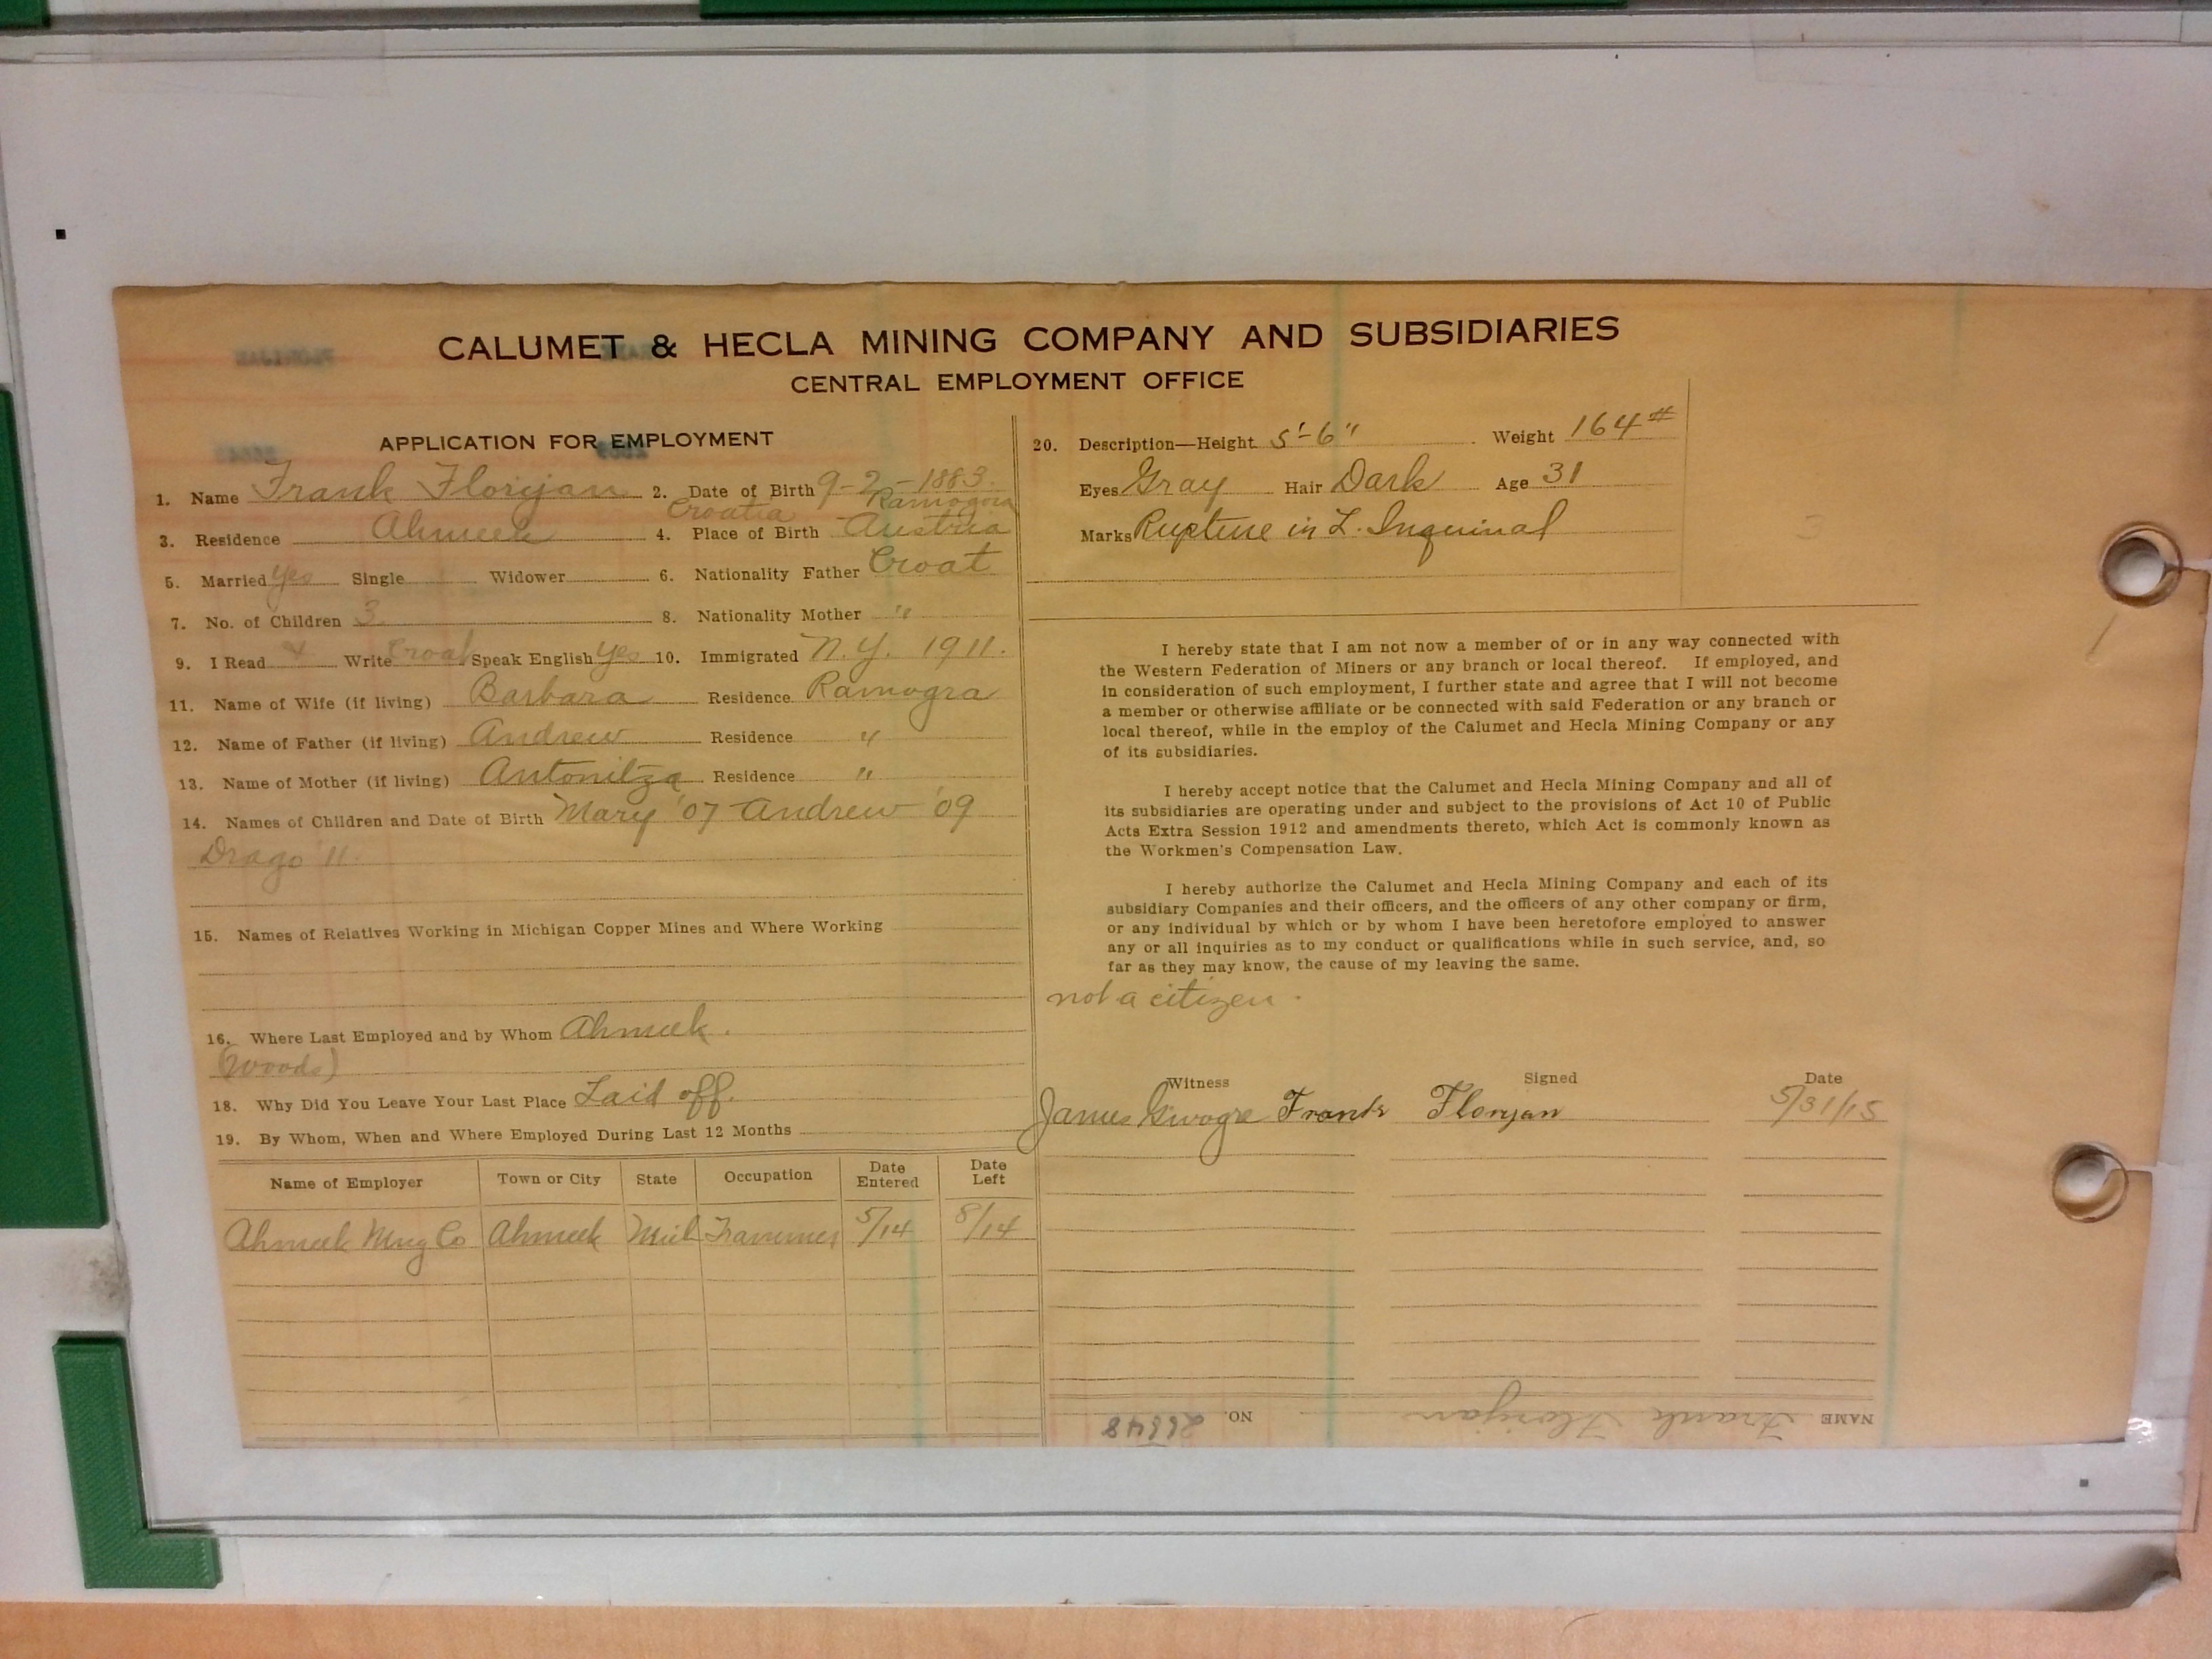 CALUMET & HECLA MINING COMPANY AND SUBSIDIARIES
CENTRAL EMPLOYMENT OFFICE
APPLICATION FOR EMPLOYMENT
1. Name Frank Florijan 2. Date of Birth 9-2-1883.
Croatia Ramogora
3. Residence Ahmeek 4. Place of Birth Austria
5. Married yes Single Widower 6. Nationality Father Croat
7. No. of Children 3 8. Nationality Mother "
9. I Read & Write Croat Speak English yes 10. Immigrated N.Y. 1911.
11. Name of Wife (if living) Barbara Residence Ramogra
12. Name of Father (if living) Andrew Residence "
13. Name of Mother (if living) Antonitza Residence "
14. Names of Children and Date of Birth Mary '07 - Andrew '09
Drago '11.
15. Names of Relatives Working in Michigan Copper Mines and Where Working
16. Where Last Employed and by Whom Ahmeek.
(Woods)
18. Why Did You Leave Your Last Place Laid off.
19. By Whom, When and Where Employed During Last 12 Months
Name of Employer Town or City State Occupation Date Entered Date Left
Ahmeek Mng Co Ahmeek Mich Trammer 5/14 8/14
20. Description—Height 5'-6" Weight 164#
Eyes Gray Hair Dark Age 31
Marks Rupture in L. Inquinal
I hereby state that I am not now a member of or in any way connected with
the Western Federation of Miners or any branch or local thereof. If employed, and
in consideration of such employment, I further state and agree that I will not become
a member or otherwise affiliate or be connected with said Federation or any branch or
local thereof, while in the employ of the Calumet and Hecla Mining Company or any
of its subsidiaries.
I hereby accept notice that the Calumet and Hecla Mining Company and all of
its subsidiaries are operating under and subject to the provisions of Act 10 of Public
Acts Extra Session 1912 and amendments thereto, which Act is commonly known as
the Workmen's Compensation Law.
I hereby authorize the Calumet and Hecla Mining Company and each of its
subsidiary Companies and their officers, and the officers of any other company or firm,
or any individual by which or by whom I have been heretofore employed to answer
any or all inquiries as to my conduct or qualifications while in such service, and, so
far as they may know, the cause of my leaving the same.
not a citizen.
Witness Signed Date
James Frank Florijan 5/31/15
NAME Frank Florijan NO.